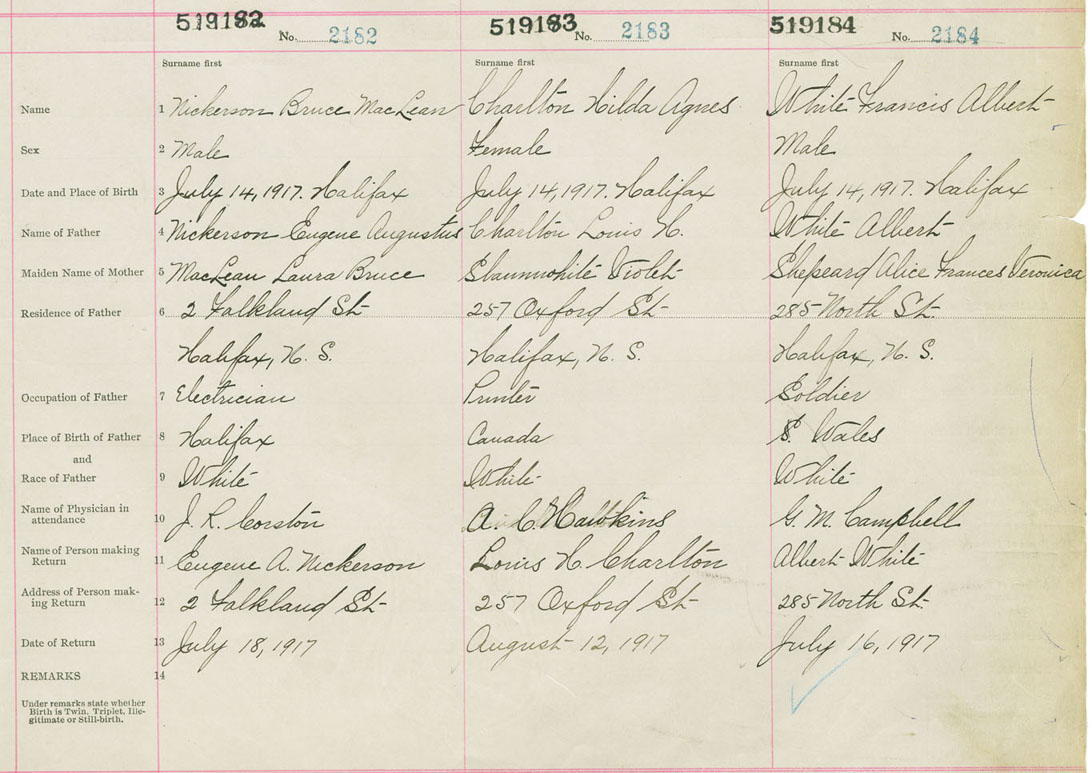 519182 No. 2182 519183 No. 2183 519184 No. 2184
Surname first Surname first Surname first
Name 1 Nickerson Bruce MacLean Charlton Hilda Agnes White Francis Albert
Sex 2 Male Female Male
Date and Place of Birth 3 July 14, 1917. Halifax July 14, 1917. Halifax July 14, 1917. Halifax
Name of Father 4 Nickerson Eugene Augustus Charlton Louis H. White Albert
Maiden Name of Mother 5 MacLean Laura Bruce Violet Shepeard Alice Frances Veronica
Residence of Father 6 2 Falkland St. 257 Oxford St. 285 North St.
Halifax, N. S. Halifax, N. S. Halifax, N. S.
Occupation of Father 7 Electrician Printer Soldier
Place of Birth of Father 8 Halifax Canada S. Wales
and
Race of Father 9 White White White
Name of Physician in
attendance 10 J. K. Corston A. C. Hawkins G. M. Campbell
Name of Person making
Return 11 Eugene A. Nickerson Louis H. Charlton Albert White
Address of Person mak-
ing Return 12 2 Falkland St. 257 Oxford St. 285 North St.
Date of Return 13 July 18, 1917 August 12, 1917 July 16, 1917
REMARKS 14
Under remarks state whether
Birth is Twin, Triplet, Ille-
gitimate or Still-birth.